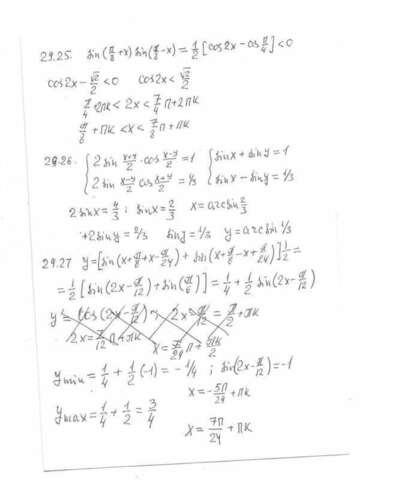 29.25. sin(π/8+x) sin(π/8-x) = 1/2 [cos2x - cos π/4] < 0
cos2x - √2/2 < 0 cos2x < √2/2
π/4 + 2πk < 2x < 7/4 π + 2πk
π/8 + πk < x < 7/8 π + πk
29.26. { 2 sin (x+y)/2 · cos (x-y)/2 = 1 { sinx + siny = 1
2 sin (x-y)/2 cos (x+y)/2 = 1/3 sinx - siny = 1/3
2 sinx = 4/3 ; sinx = 2/3 x = arcsin 2/3
+2 siny = 2/3 siny = 1/3 y = arcsin 1/3
29.27 y = [sin(x + π/8 + x - π/24) + sin(x + π/8 - x + π/24)] 1/2 =
= 1/2 [sin(2x - π/12) + sin(π/6)] = 1/4 + 1/2 sin(2x - π/12)
y' = cos(2x - π/12) 2x - π/12 = π/2 + πk
2x = 7/12 π + πk x = 7/24 π + πk/2
y min = 1/4 + 1/2 (-1) = -1/4 ; sin(2x - π/12) = -1
x = -5π/24 + πk
y max = 1/4 + 1/2 = 3/4
x = 7π/24 + πk